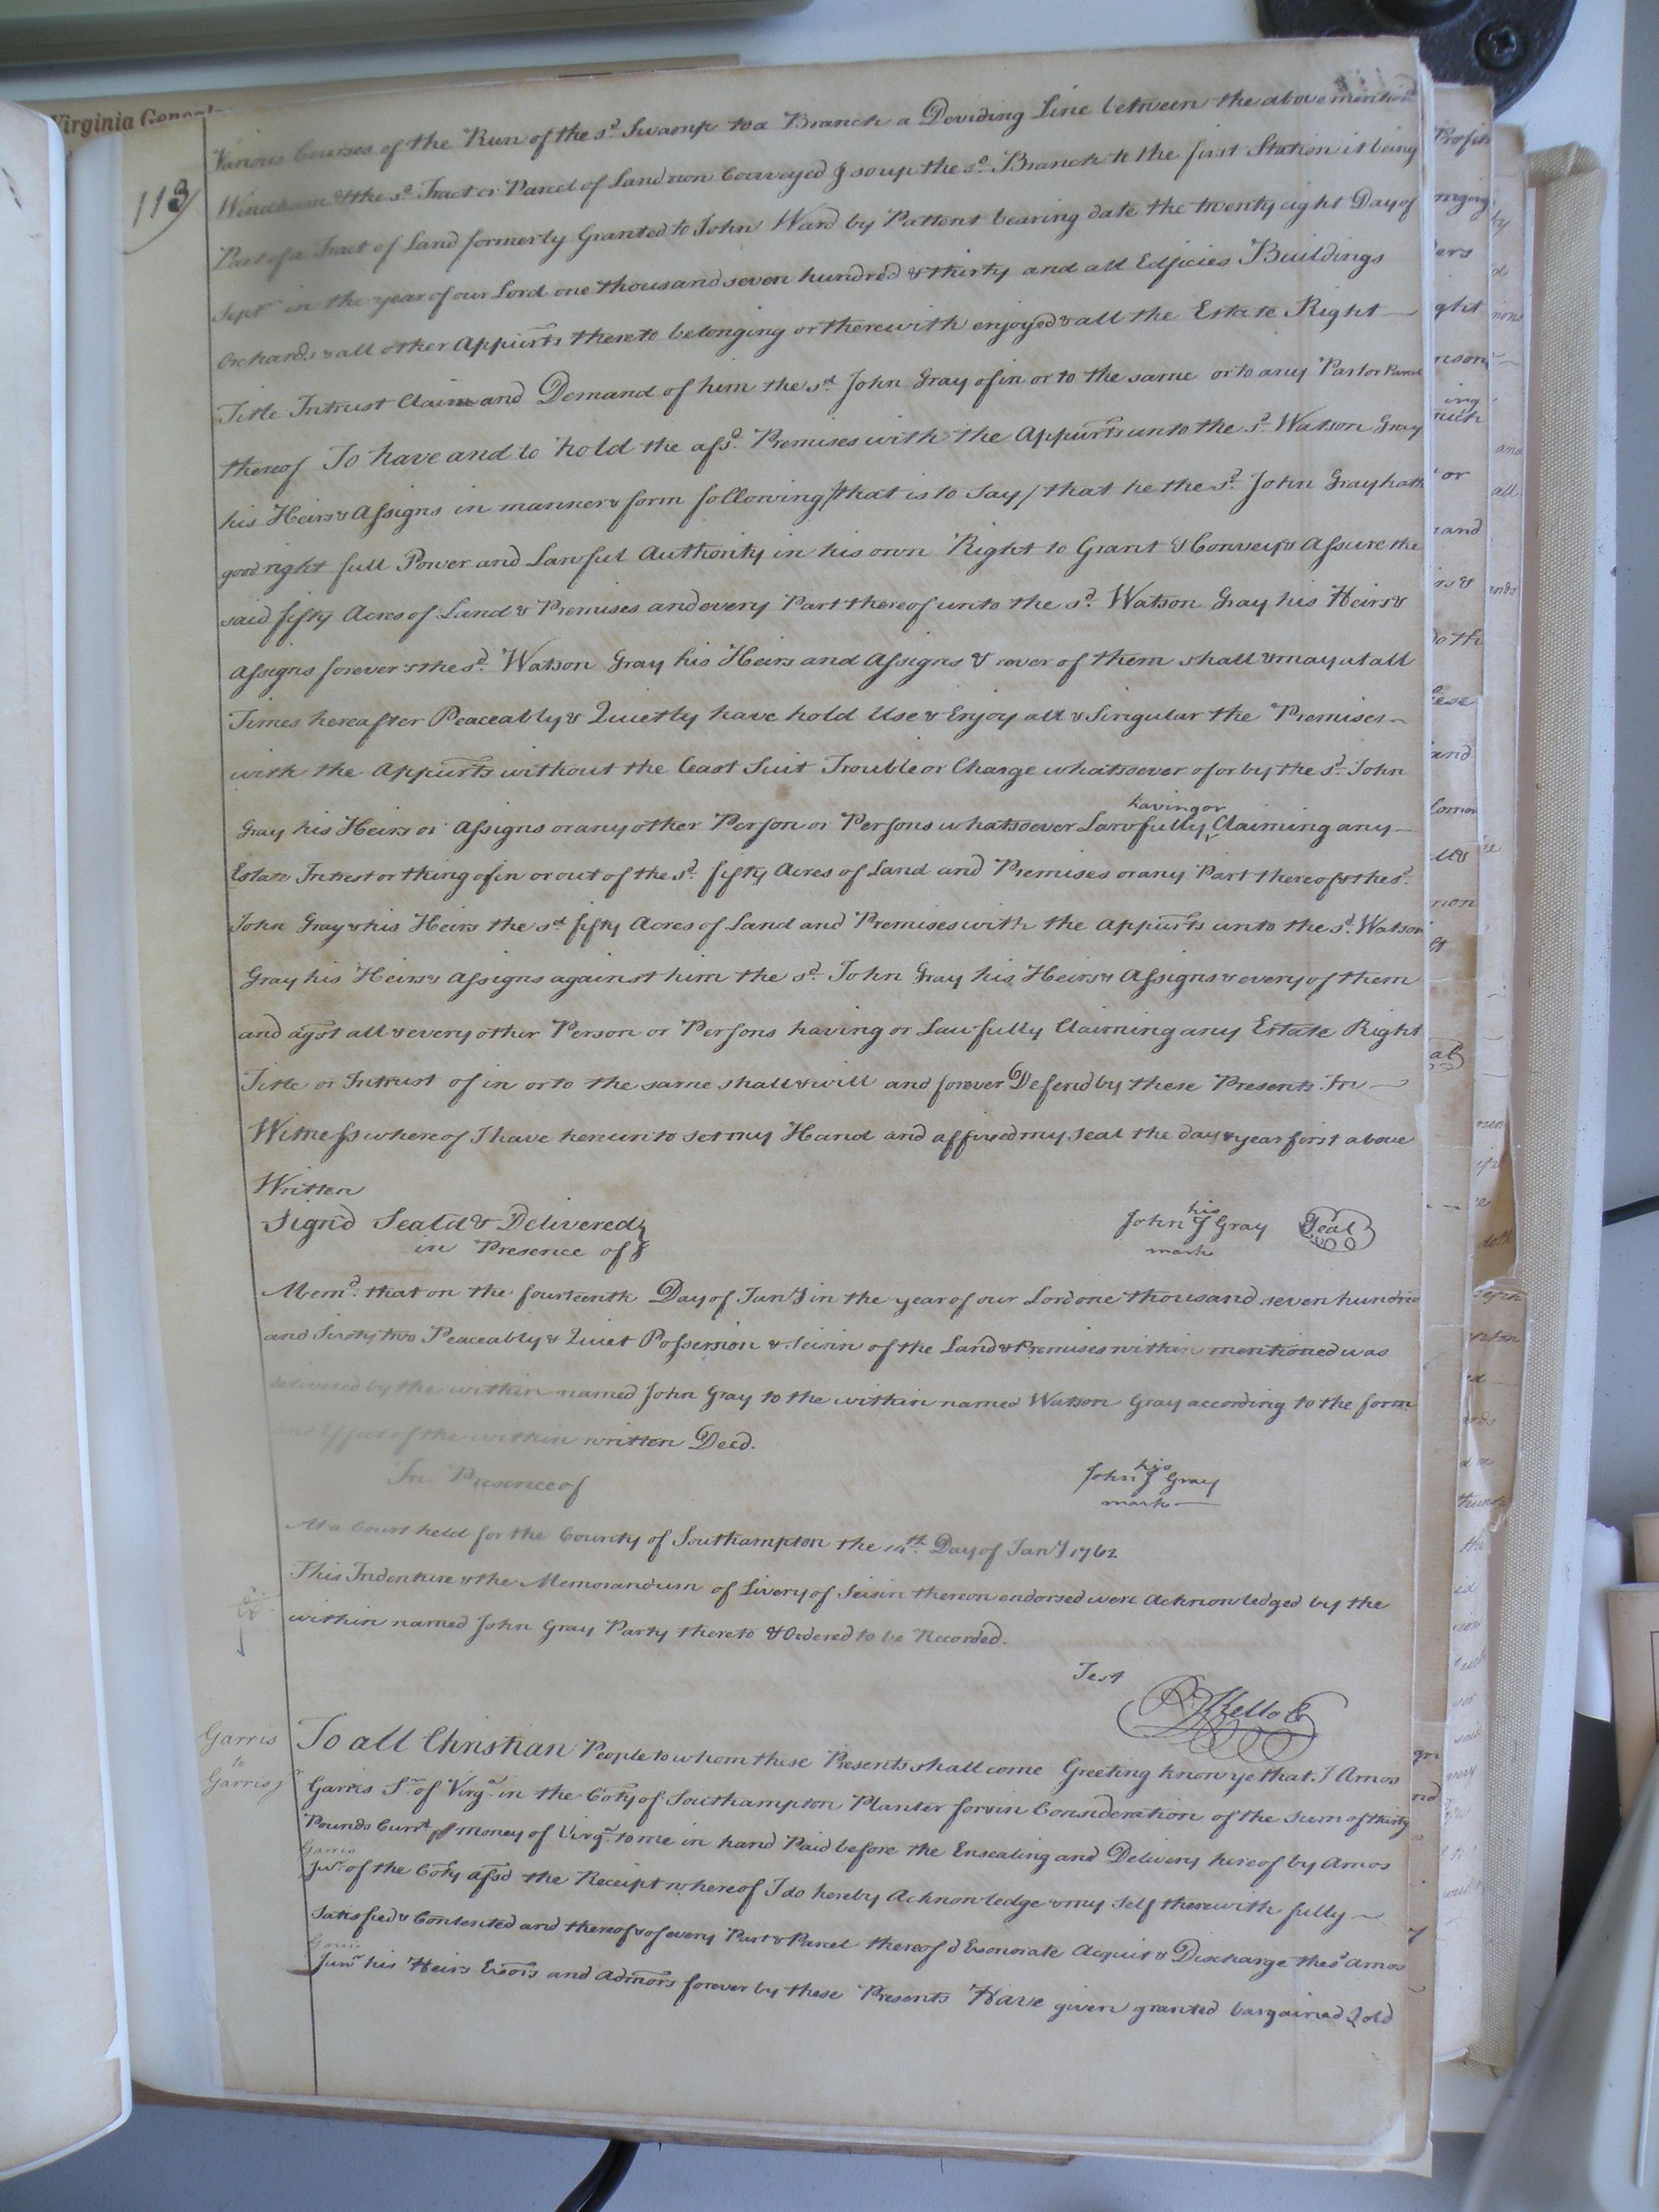 Virginia
113
Various Courses of the Run of the sd. Swamp to a Branch a Deviding Line between the above mention'd
Windham & the sd. Tract or Parcel of Land now Conveyed & so up the sd. Branch to the first Station it being
Part of a Tract of Land formerly Granted to John Ward by Pattent bearing date the twenty eight Day of
Septr. in the year of our Lord one thousand seven hundred & thirty and all Edficies Buildings
Orchards & all other Appurts thereto belonging or therewith enjoyed & all the Estate Right
Title Intrust Claim and Demand of him the sd. John Gray of in or to the same or to any Part or Parcel
thereof To have and to hold the afsd. Premises with the Appurts unto the sd. Watson Gray
his Heirs & Assigns in manner & form following / that is to say / that he the sd. John Gray hath
good right full Power and Lawful Authority in his own Right to Grant & Convey & Assure the
said fifty Acres of Land & Premises and every Part thereof unto the sd. Watson Gray his Heirs &
Assigns forever & the sd. Watson Gray his Heirs and Assigns & ever of them shall & may at all
Times hereafter Peaceably & Quietly have hold Use & Enjoy all & Singular the Premises
with the Appurts without the least Suit Trouble or Charge whatsoever of or by the sd. John
having or
Gray his Heirs or Assigns or any other Person or Persons whatsoever Lawfully Claiming any
Estate Intrest or thing of in or out of the sd. fifty Acres of Land and Premises or any Part thereof & the sd.
John Gray & his Heirs the sd. fifty Acres of Land and Premises with the Appurts unto the sd. Watson
Gray his Heirs & Assigns against him the sd. John Gray his Heirs & Assigns & every of them
and agst all & every other Person or Persons having or Lawfully Claiming any Estate Right
Title or Intrust of in or to the same shall & will and forever Defend by these Presents In
Witness whereof I have hereunto set my Hand and affixed my Seal the day & year first above
Written
Signd Seald & Delivered
in Presence of
his
John J Gray Seal
mark
Memd. that on the fourteenth Day of Jany in the year of our Lord one thousand seven hundred
and Sixty two Peaceably & Quiet Possession & Seisin of the Land & Premises within mentioned was
delivered by the within named John Gray to the within named Watson Gray according to the form
and Effect of the within written Deed.
In Presence of
his
John J Gray
mark
At a Court held for the County of Southampton the 14th. Day of Jany 1762
This Indenture & the Memorandum of Livery of Seisin thereon endorsed were Acknowledged by the
within named John Gray Party thereto & Ordered to be Recorded.
Test
R. Kello C
Garris
to
Garris
To all Christian People to whom these Presents shall come Greeting know ye that I Amos
Garris Sr. of Virga. in the Coty of Southampton Planter for & in Consideration of the Sum of thirty
Pounds Currt. money of Virga. to me in hand Paid before the Ensealing and Delivery hereof by Amos
Garris
Junr. of the Coty afsd the Receipt whereof I do hereby Acknowledge & my Self therewith fully
Satisfied & Contented and thereof & of every Part & Parcel thereof d Exonorate Acquit & Discharge the sd Amos
Garris
Junr his Heirs Exors and Admors forever by these Presents Have given granted bargained Sold